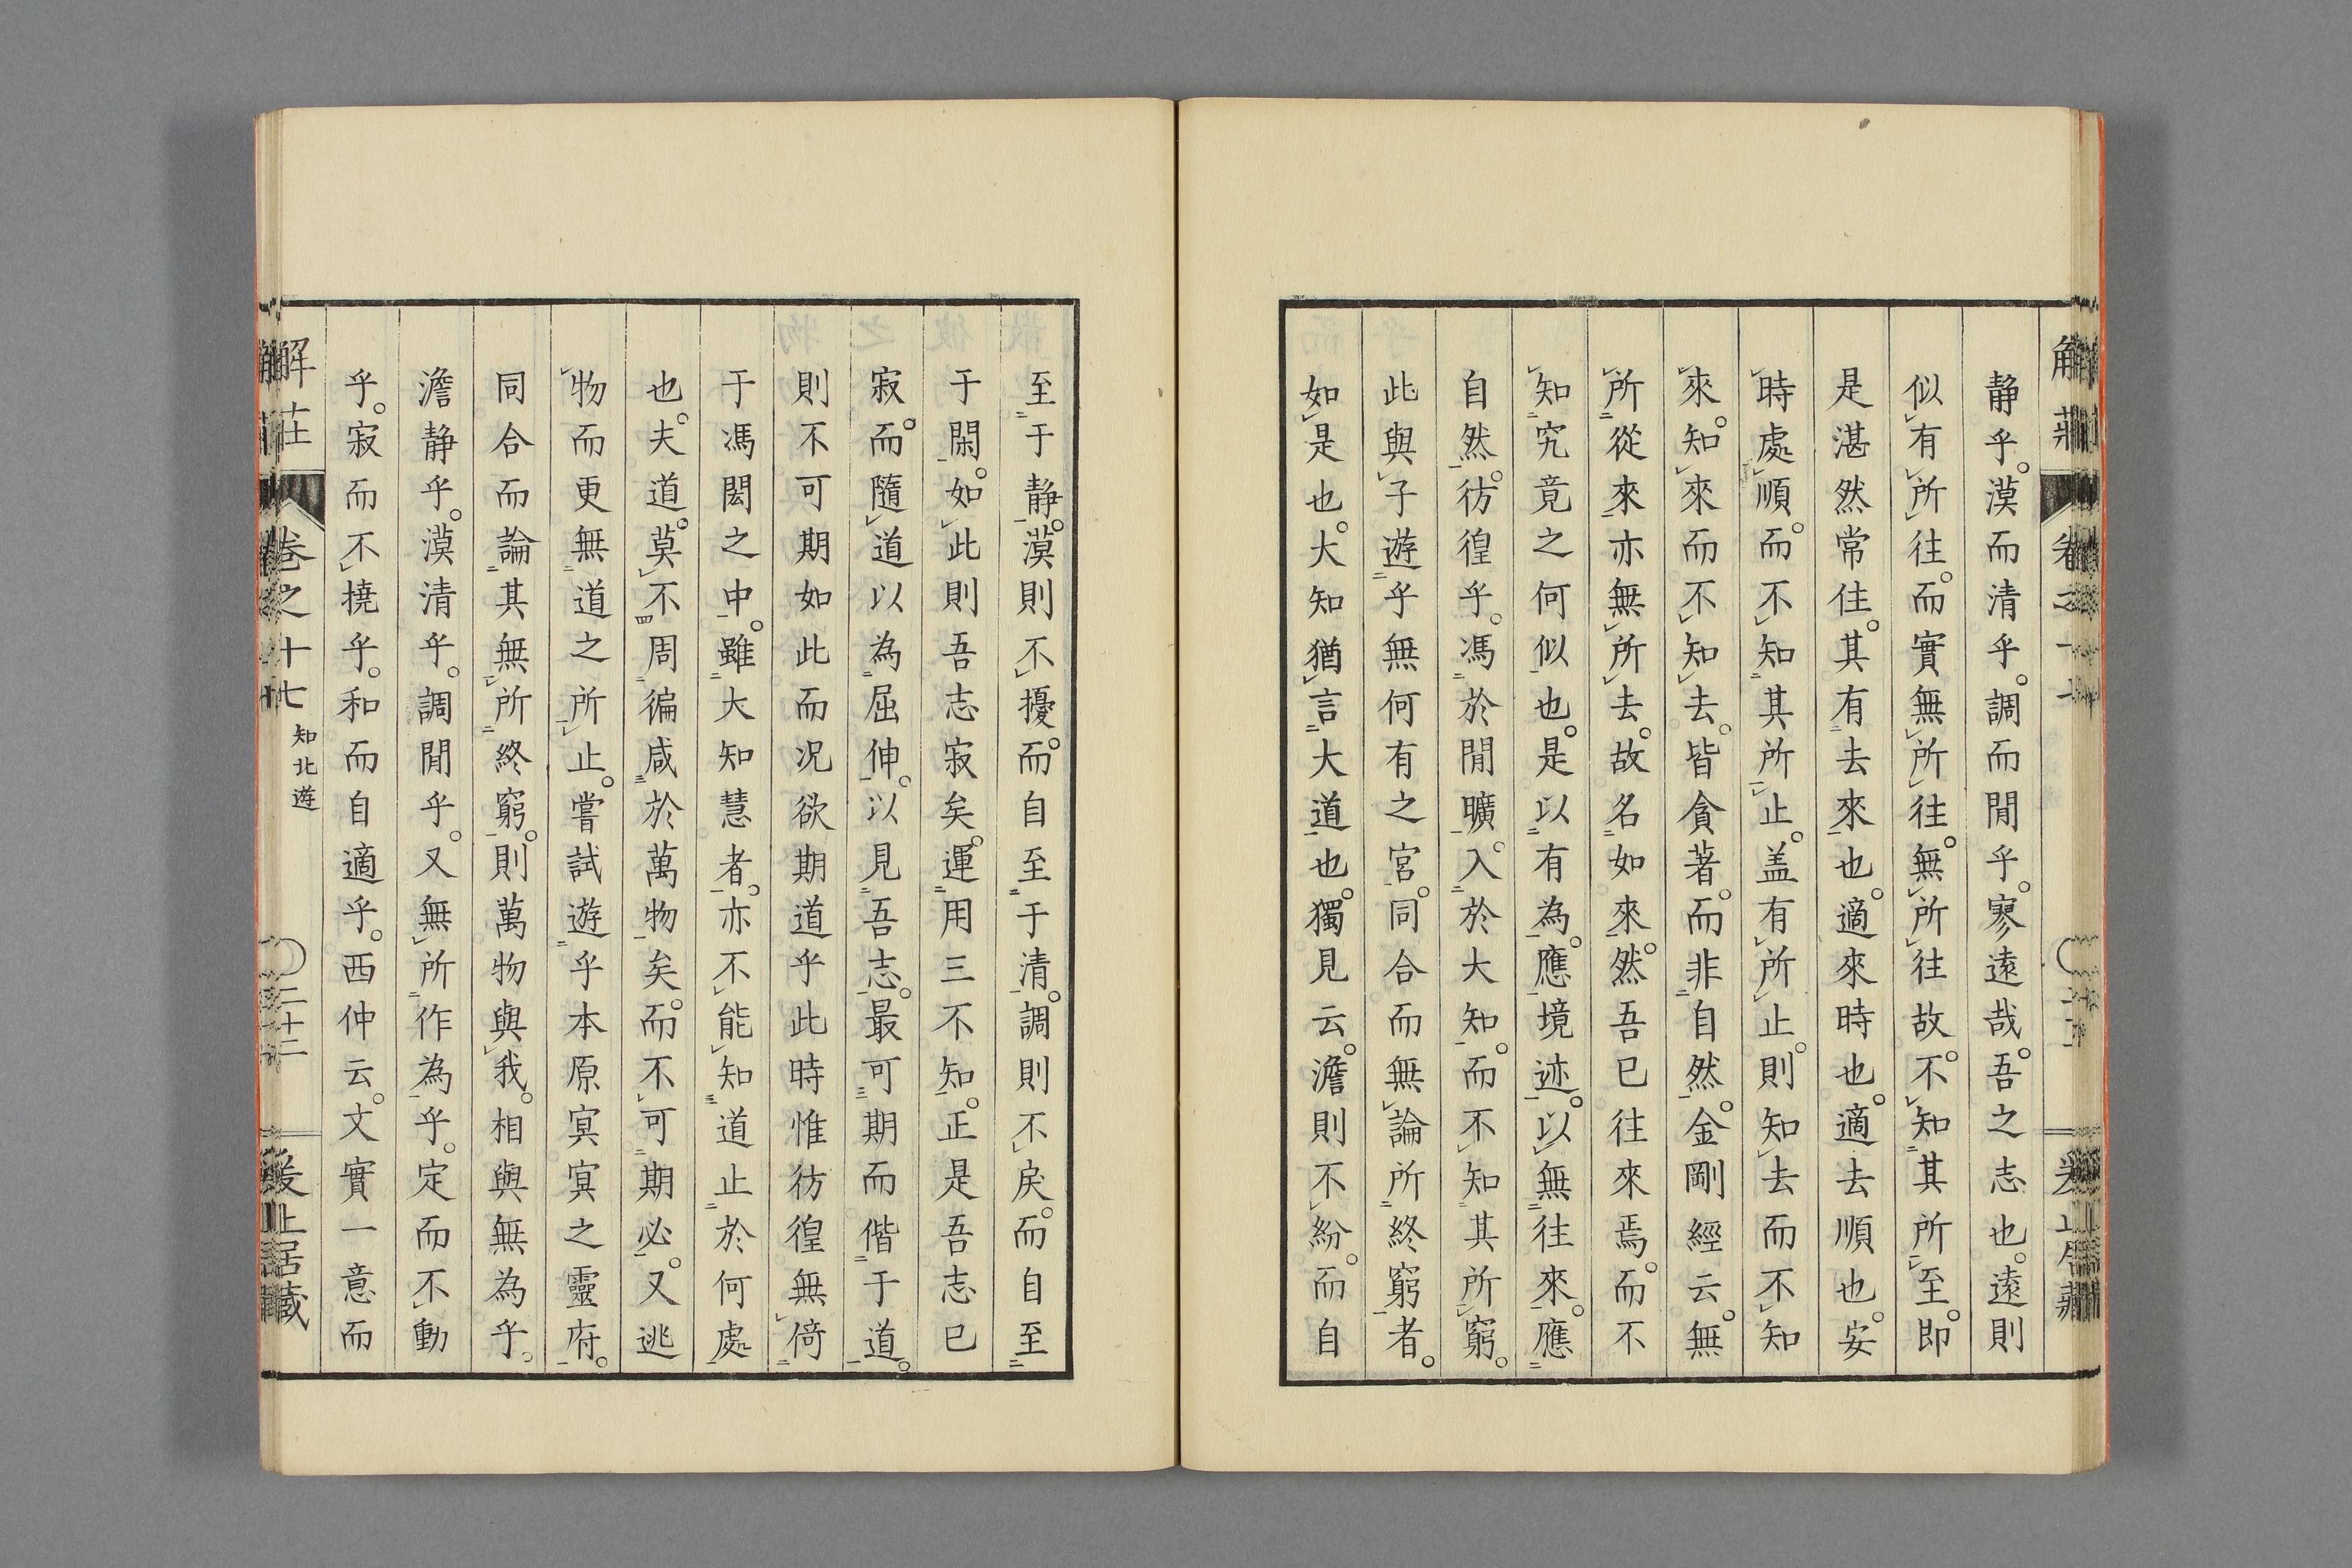 静乎。漠而清乎。調而閒乎。寥遠哉。吾之志也。遠則
似有所往。而實無所往。無所往故。不知其所至。即
是湛然常住。其有去來也。適來時也。適去順也。安
時處順。而不知其所止。盖有所止。則知去而不知
來。知來而不知去。皆貪著。而非自然。金剛經云。無
所從來亦無所去。故名如來。然吾已往來焉。而不
知究竟之何似也。是以有為。應境迹。以無往來。應
自然。彷徨乎。馮於閒曠。入於大知。而不知其所窮。
此與子遊乎無何有之宮。同合而無論所終窮者。
如是也。大知猶言大道也。獨見云。澹則不紛。而自
至于静。漠則不擾。而自至于清。調則不戾。而自至
于閑。如此則吾志寂矣。運用三不知。正是吾志已
寂。而隨道以為屈伸。以見吾志。最可期而偕于道。
則不可期如此而况欲期道乎此時惟彷徨無倚
于馮閎之中。雖大知慧者。亦不能知道止於何處
也。夫道。莫不周徧咸於萬物矣。而不可期必。又逃
物而更無道之所止。嘗試遊乎本原㝠㝠之靈府。
同合而論其無所終窮。則萬物與我。相與無為乎。
澹静乎。漠清乎。調閒乎。又無所作為乎。定而不動
乎。寂而不撓乎。和而自適乎。西仲云。文實一意而
解莊
卷之十七
知北遊
二十二